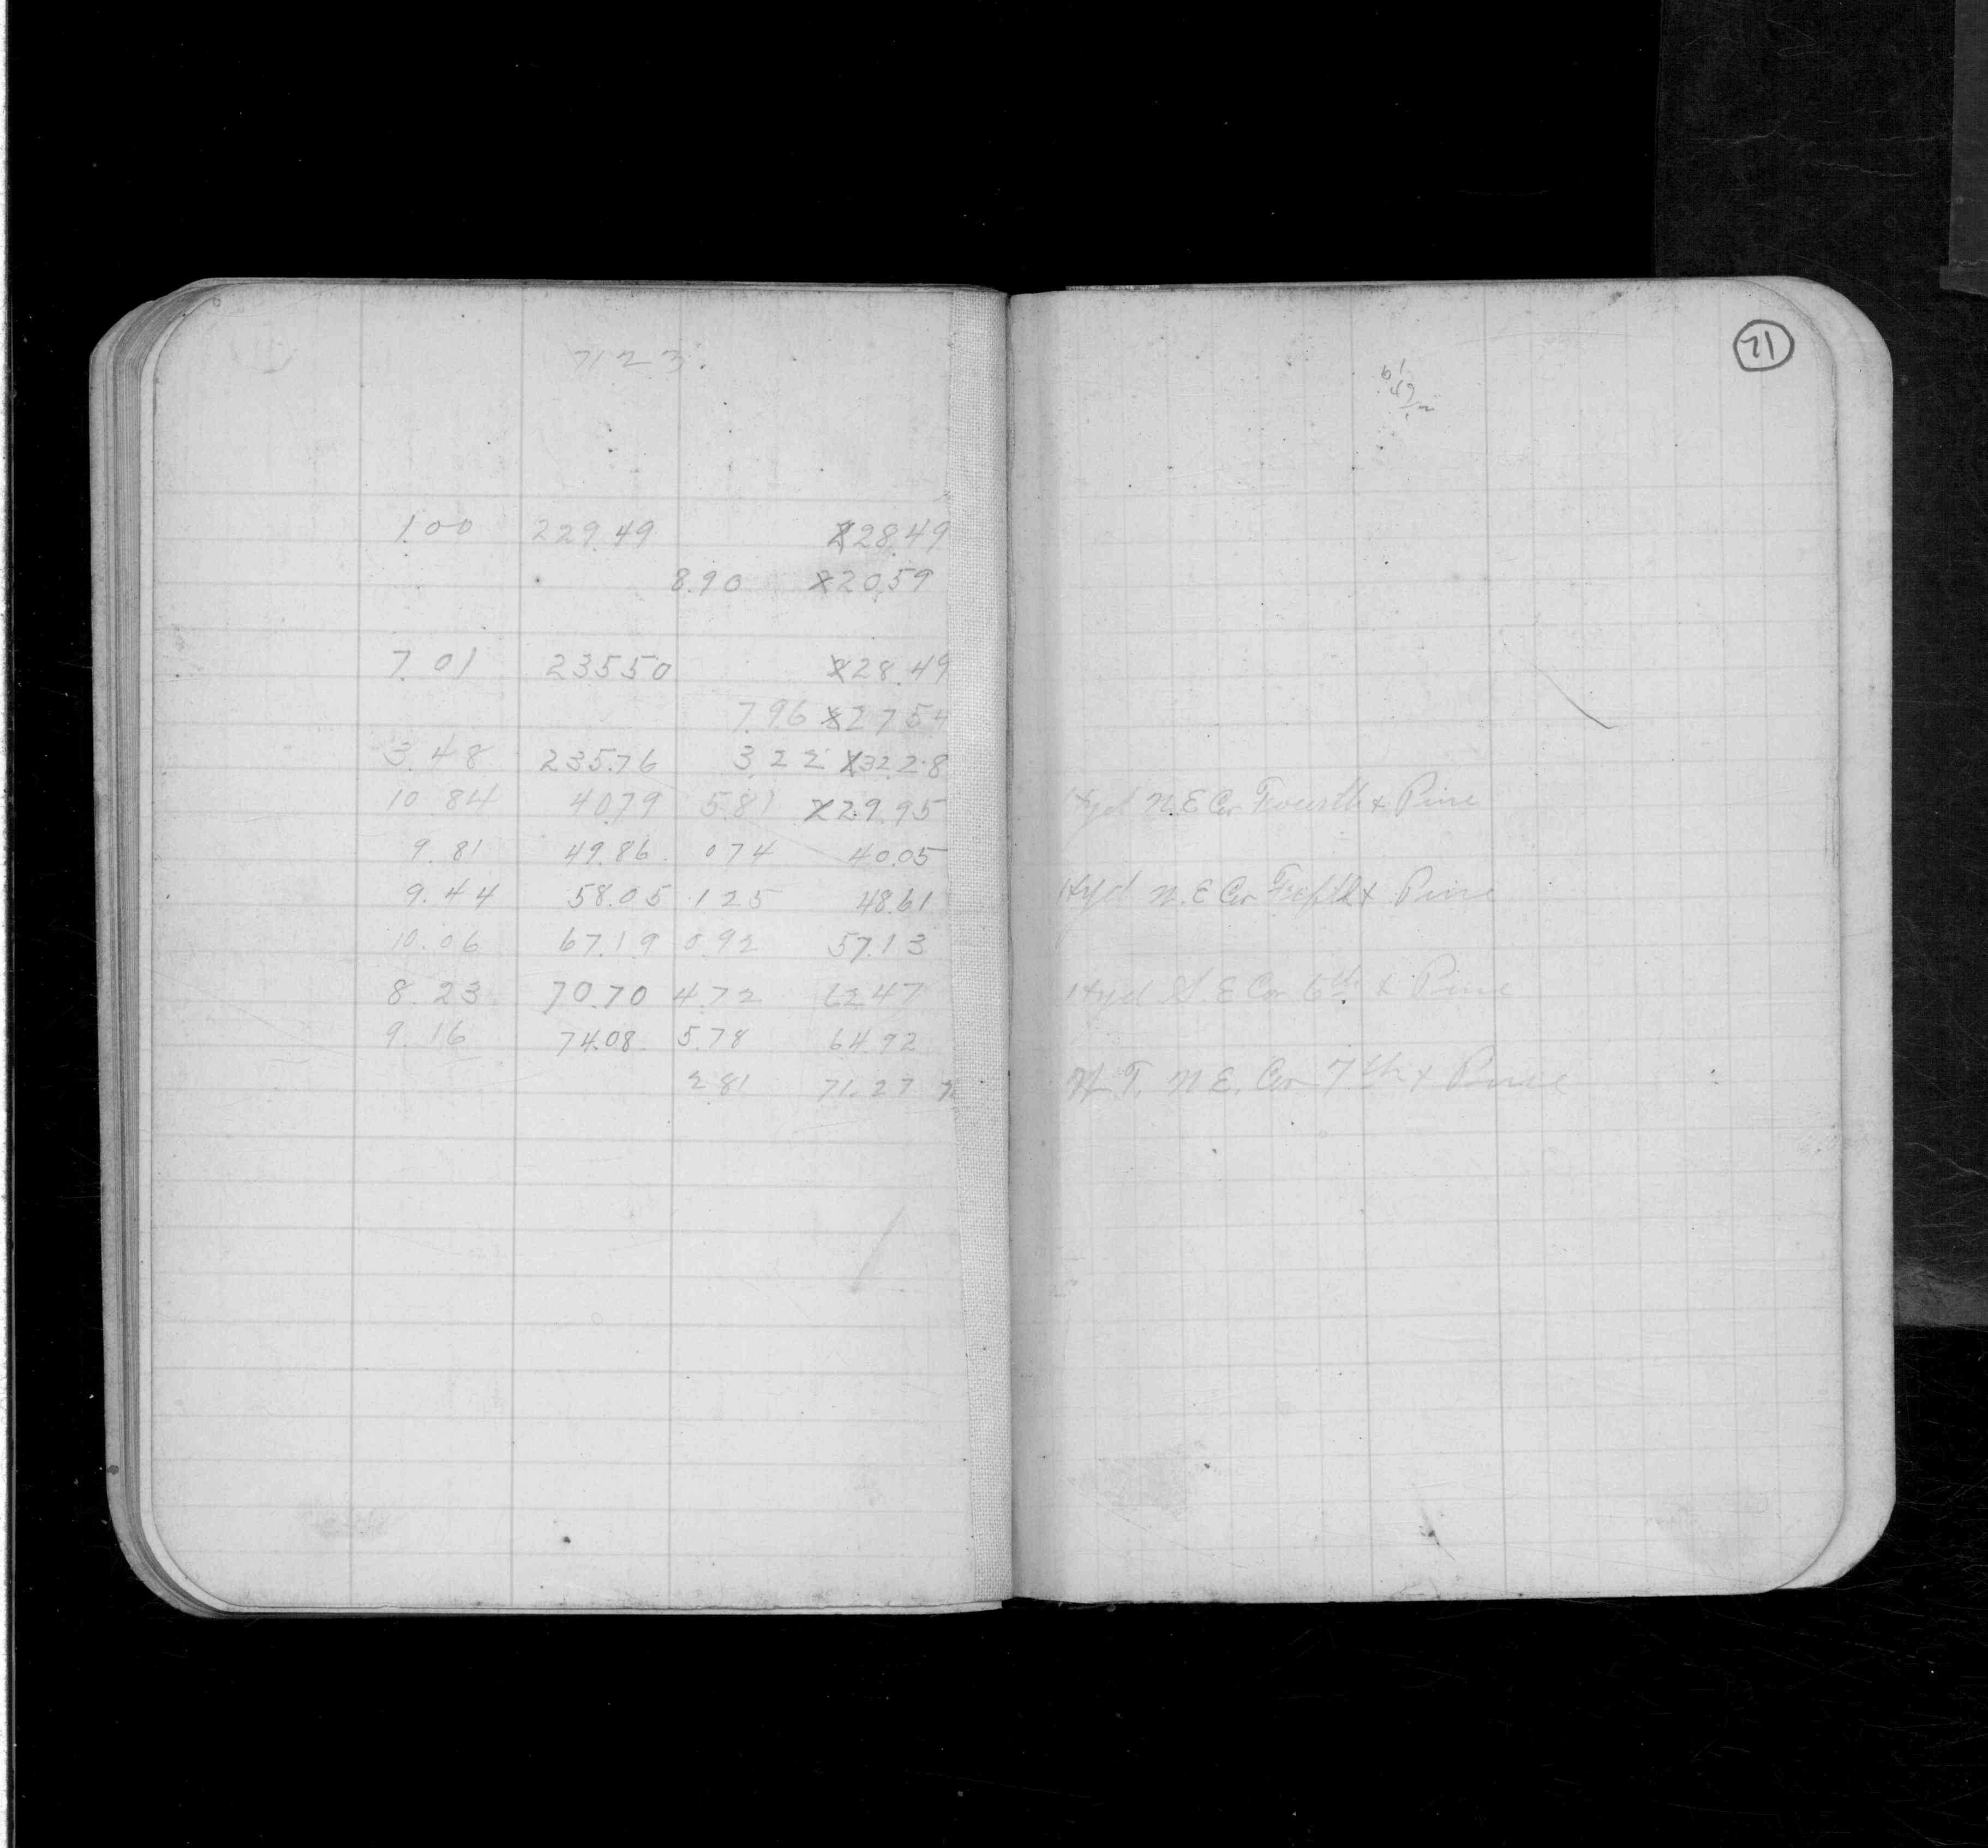 7123.
71
1.00 229.49 228.49
8.90 220.59
7.01 235.50 228.49
7.96 227.54
3.48 235.76 3.22 232.28
10.84 40.79 5.81 229.95 Hyd N.E Cor Fourth & Pine
9.81 49.86 0.74 40.05
9.44 58.05 1.25 48.61 Hyd N.E Cor Fifth & Pine
10.06 67.19 0.92 57.13
8.23 70.70 4.72 62.47 Hyd S.E Cor 6th & Pine
9.16 74.08 5.78 64.92
2.81 71.27 N.E. Cor 7th & Pine